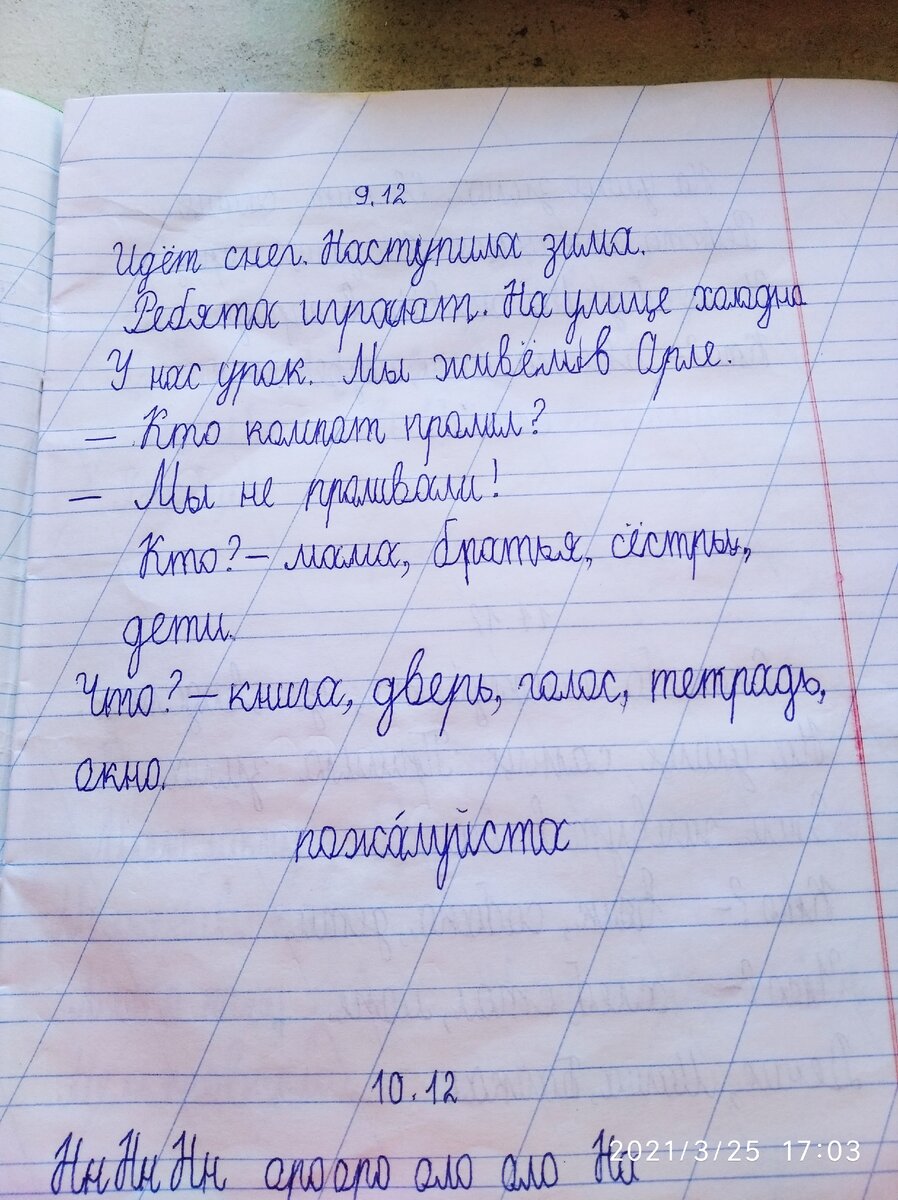 9.12
Идёт снег. Наступила зима.
Ребята играют. На улице холодно
У нас урок. Мы живём в Орле.
— Кто компот пролил?
— Мы не проливали!
Кто? – мама, братья, сёстры,
дети.
Что? – книга, дверь, голос, тетрадь,
окно.
пожа́луйста
10.12
Нн Нн Нн оро оро оло оло На
2021/3/25 17:03